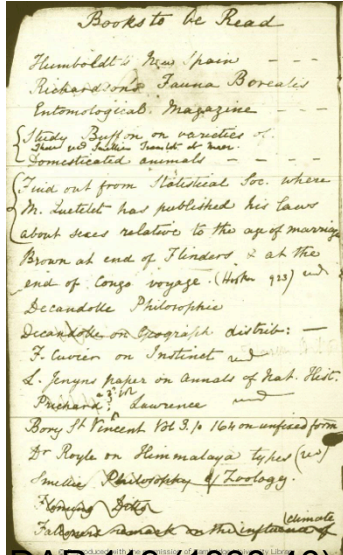 Books to be Read
Humboldt's New Spain - - -
Richardson's Fauna Borealis
Entomological Magazine - - -
Study Buffon on varieties of
Domesticated animals - - - -
Find out from Statistical Soc. where
M. Quetelet has published his laws
about sexes relative to the age of marriage
Brown at end of Flinders & at the
end of Congo voyage. (Hooker 923) read
Decandolle Philosophie
Decandolle on Geograph distrib: —
F. Cuvier on Instinct read
L. Jenyns paper on Annals of Nat. Hist.
Prichard; Lawrence read
Bory St Vincent Vol 3. p 164 on unfixed form
Dr Royle on Himmalaya types (read)
Smellie Philosophy of Zoology.
Fleming Ditto
Falconers remark on the influence of climate